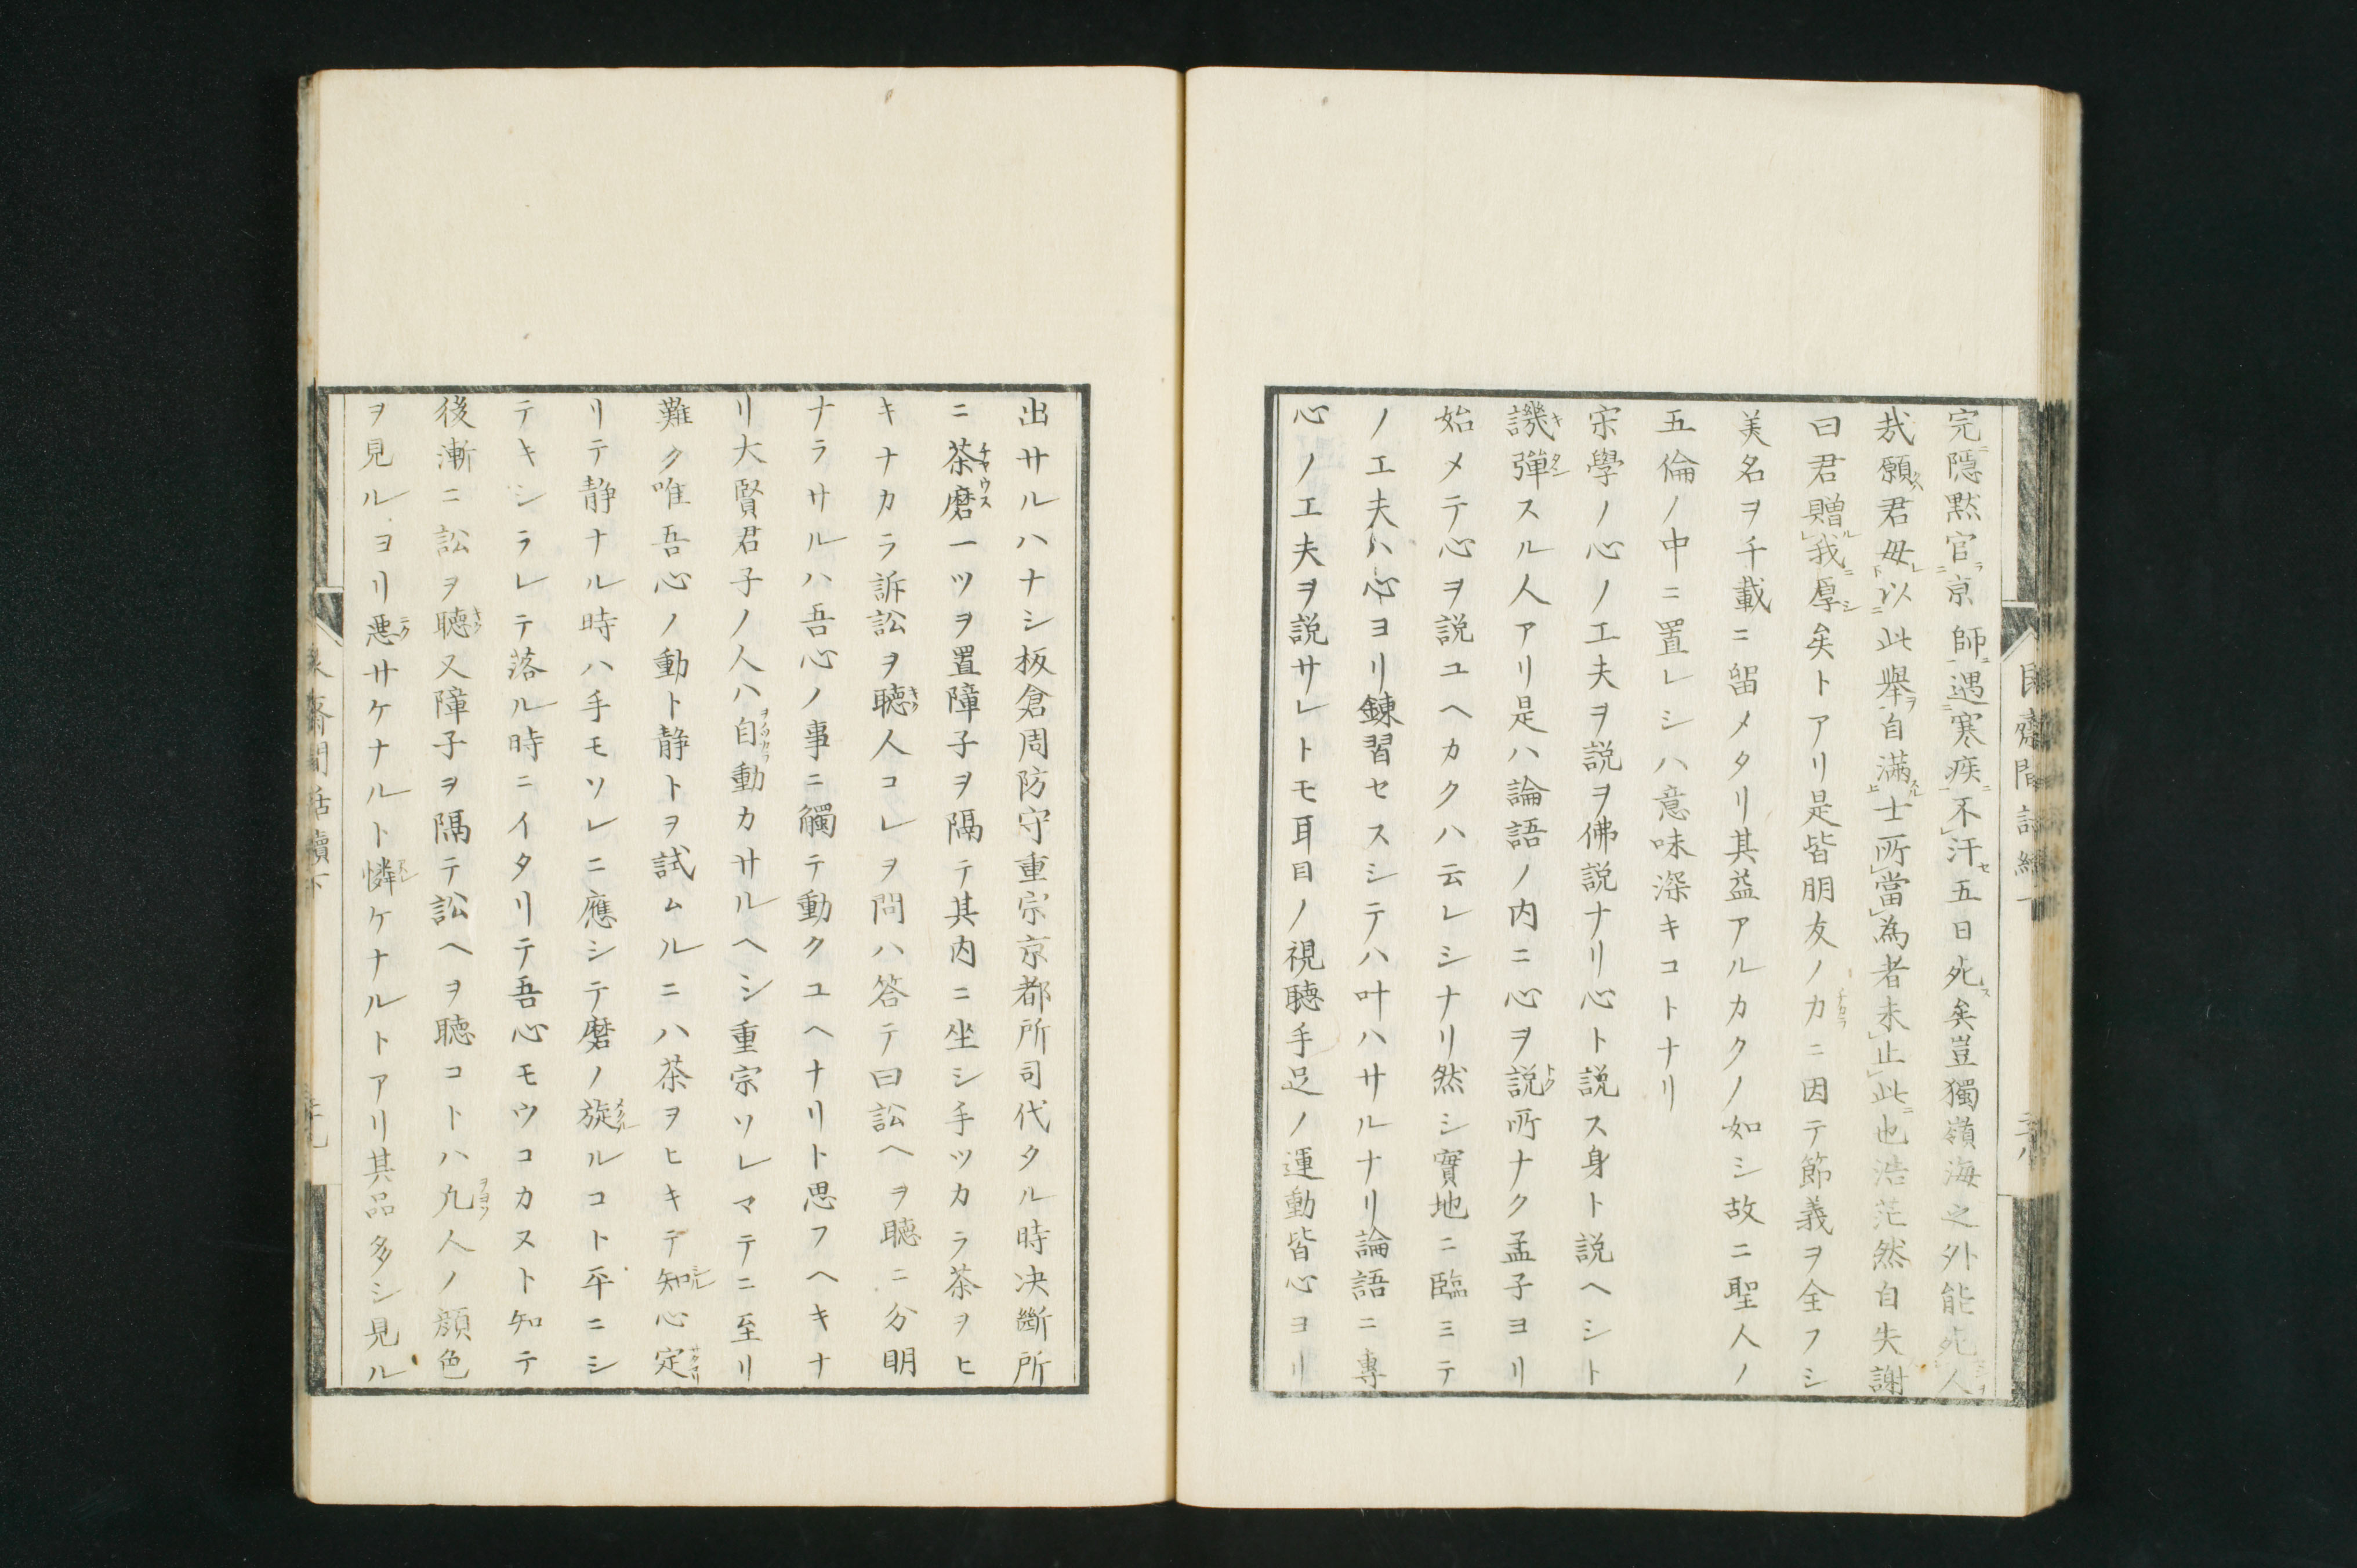 完隱黙官京師遇寒疾不汗五日死矣豈獨嶺海之外能死人
哉願君毋以此舉自滿士所當為者未止此也浩茫然自失謝
曰君贈我厚矣トアリ是皆朋友ノ力ニ因テ節義ヲ全フシ
美名ヲ千載ニ留メタリ其益アルカクノ如シ故ニ聖人ノ
五倫ノ中ニ置レシハ意味深キコトナリ
宋學ノ心ノ工夫ヲ説ヲ佛説ナリ心ト説ス身ト説ヘシト
譏彈スル人アリ是ハ論語ノ内ニ心ヲ説所ナク孟子ヨリ
始メテ心ヲ説ユヘカクハ云レシナリ然シ實地ニ臨ミテ
ノ工夫ハ心ヨリ錬習セスシテハ叶ハサルナリ論語ニ專
心ノ工夫ヲ説サレトモ耳目ノ視聽手足ノ運動皆心ヨリ
出サルハナシ板倉周防守重宗京都所司代タル時决斷所
ニ茶磨一ツヲ置障子ヲ隔テ其内ニ坐シ手ツカラ茶ヲヒ
キナカラ訴訟ヲ聽人コレヲ問ハ答テ曰訟ヘヲ聽ニ分明
ナラサルハ吾心ノ事ニ觸テ動クユヘナリト思フヘキナ
リ大賢君子ノ人ハ自動カサルヘシ重宗ソレマテニ至リ
難ク唯吾心ノ動ト静トヲ試ムルニハ茶ヲヒキテ知心定
リテ静ナル時ハ手モソレニ應シテ磨ノ旋ルコト平ニシ
テキシラレテ落ル時ニイタリテ吾心モウコカスト知テ
後漸ニ訟ヲ聽又障子ヲ隔テ訟ヘヲ聽コトハ凢人ノ顔色
ヲ見ルヨリ悪サケナルト憐ケナルトアリ其品多シ見ル